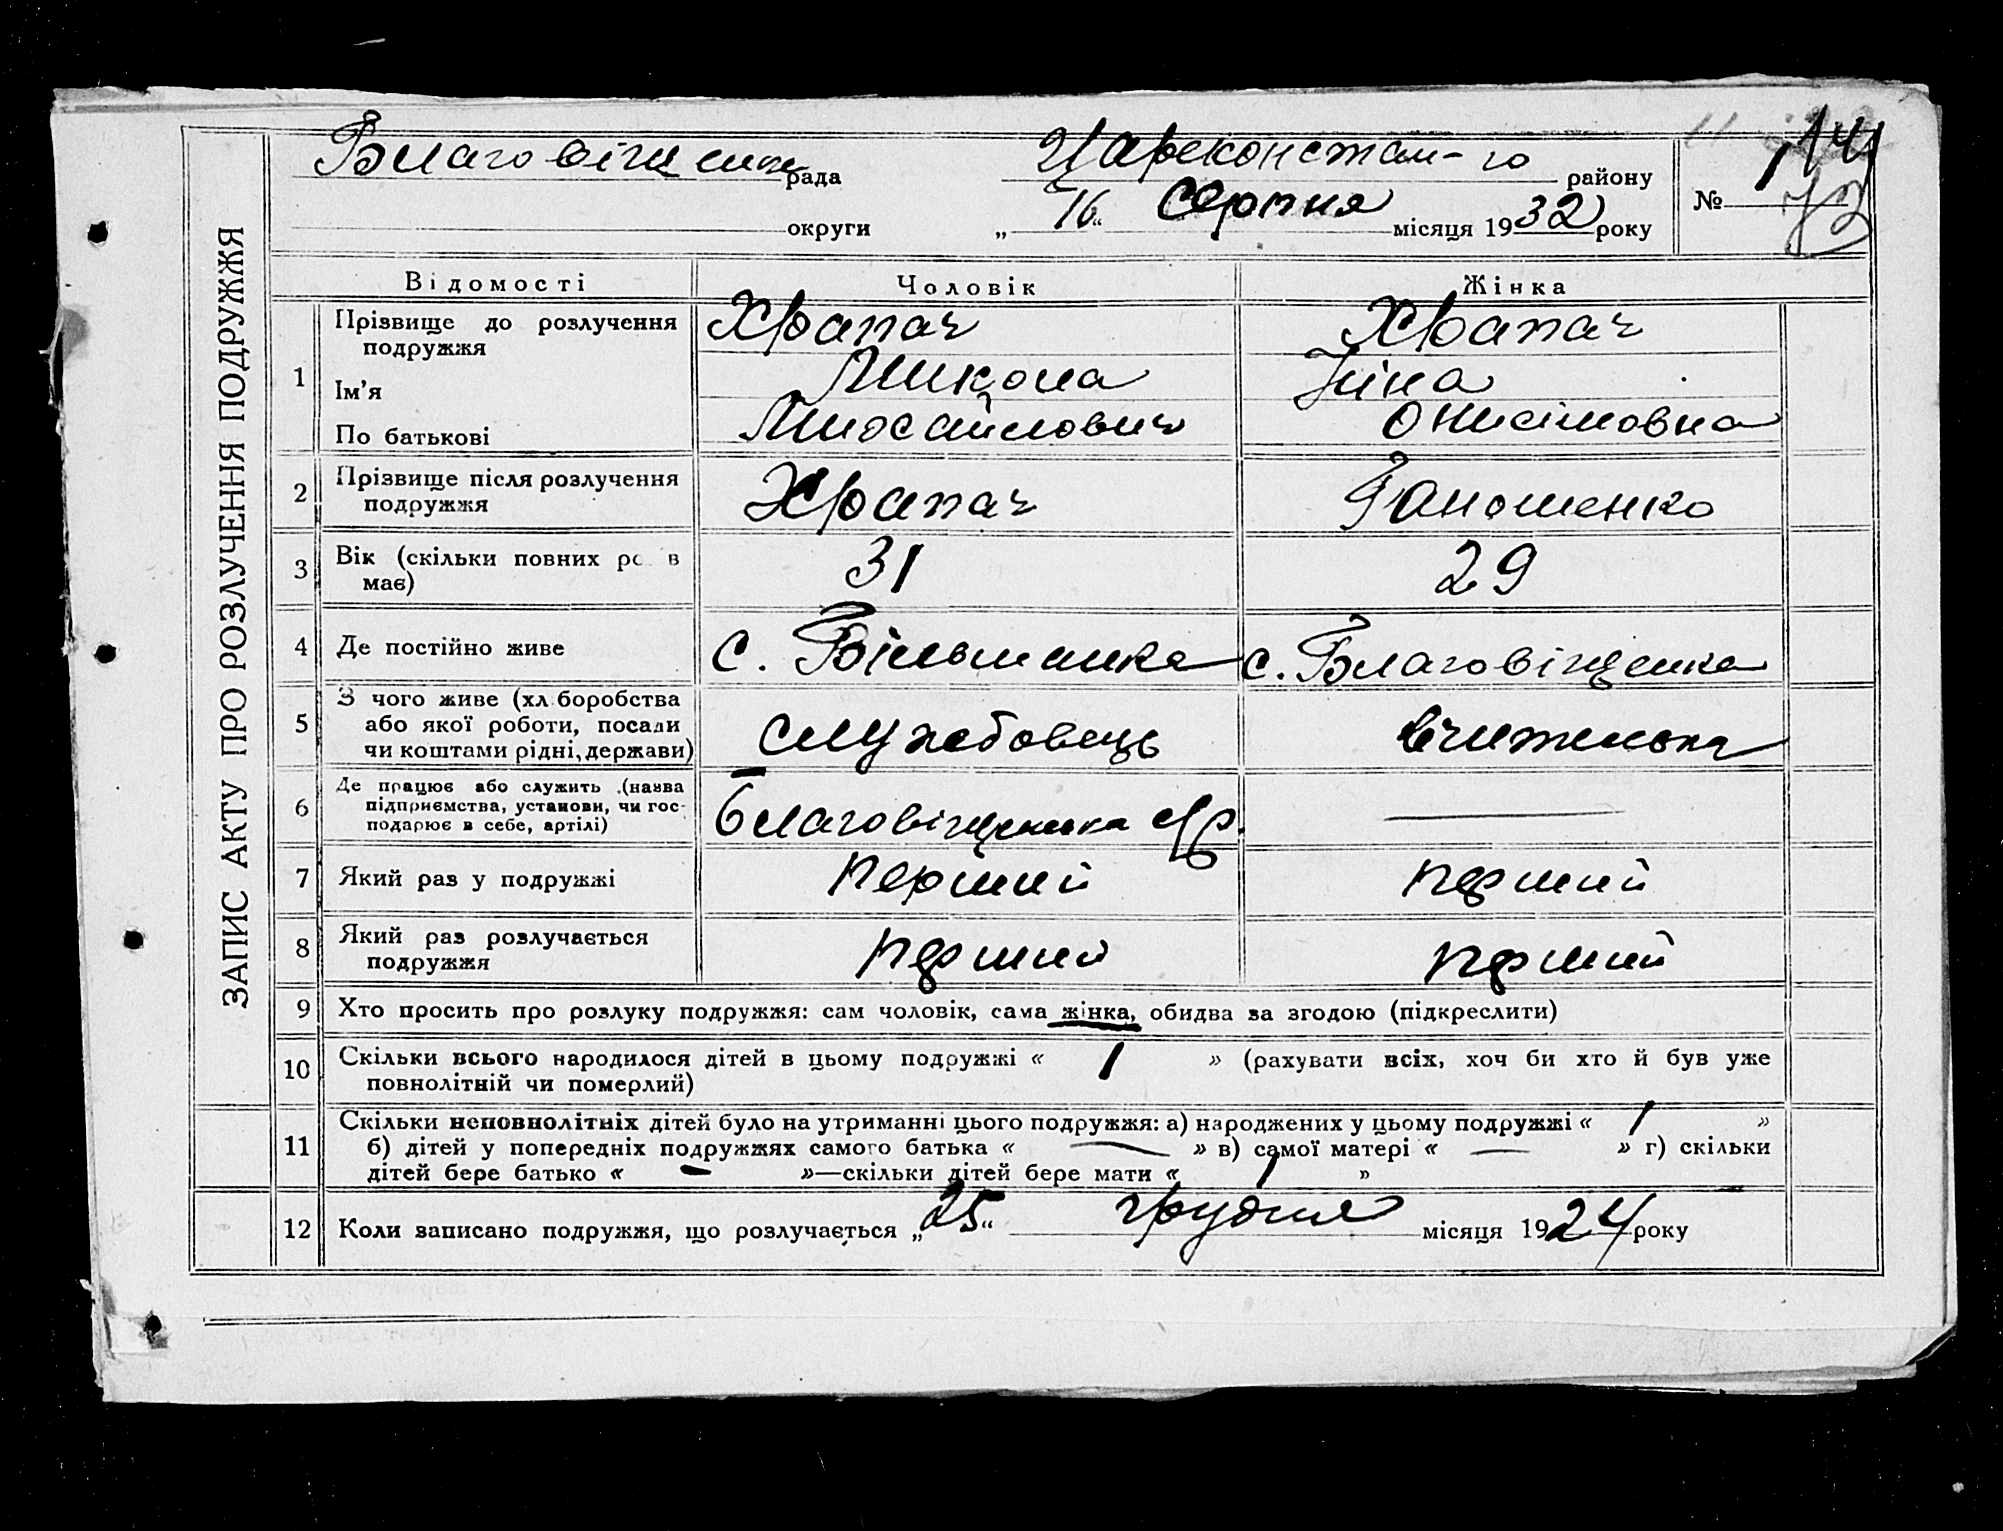 ЗАПИС АКТУ ПРО РОЗЛУЧЕННЯ ПОДРУЖЖЯ
Благовіщенк рада Цареконстан-го району
округи „16“ Серпня місяця 1932 року
№ 14
73
Відомості Чоловік Жінка
1 Прізвище до розлучення подружжя Храпач Храпач
Ім'я Микола Ніна
По батькові Михайлович Онисімовна
2 Прізвище після розлучення подружжя Храпач
3 Вік (скільки повних ро в має) 31 29
4 Де постійно живе с. Вільшанка с. Благовіщенка
5 З чого живе (хл боробства
або якої роботи, посади
чи коштами рідні, держави) службовець вчителька
6 Де працює або служить (назва
підприємства, установи, чи гос-
подарює в себе, артілі) благовіщенська —
7 Який раз у подружжі перший перший
8 Який раз розлучається
подружжя перший перший
9 Хто просить про розлуку подружжя: сам чоловік, сама жінка, обидва за згодою (підкреслити)
10 Скільки всього народилося дітей в цьому подружжі « 1 » (рахувати всіх, хоч би хто й був уже
повнолітній чи померлий)
11 Скільки неповнолітніх дітей було на утриманні цього подружжя: а) народжених у цьому подружжі « 1 »
б) дітей у попередніх подружжях самого батька « — » в) самої матері « — » г) скільки
дітей бере батько « — »—скільки дітей бере мати « 1 »
12 Коли записано подружжя, що розлучається „25“ грудня місяця 1924 року